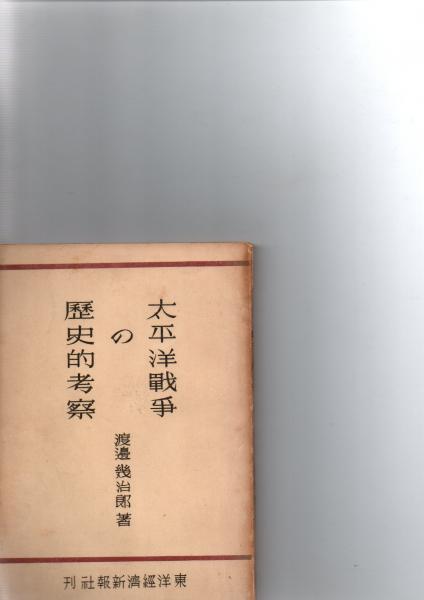 太平洋戰爭
の
歷史的考察
渡邊幾治郎 著
東洋經濟新報社刊